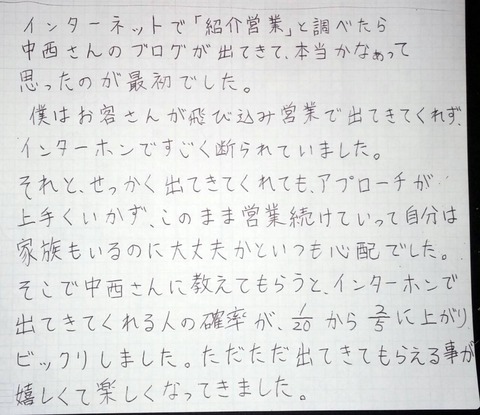 インターネットで「紹介営業」と調べたら
中西さんのブログが出てきて、本当かなぁって
思ったのが最初でした。
僕はお客さんが飛び込み営業で出てきてくれず、
インターホンですごく断られていました。
それと、せっかく出てきてくれても、アプローチが
上手くいかず、このまま営業続けていって自分は
家族もいるのに大丈夫かといつも心配でした。
そこで中西さんに教えてもらうと、インターホンで
出てきてくれる人の確率が、1/20から2/5に上がり
ビックリしました。ただただ出てきてもらえる事が
嬉しくて楽しくなってきました。